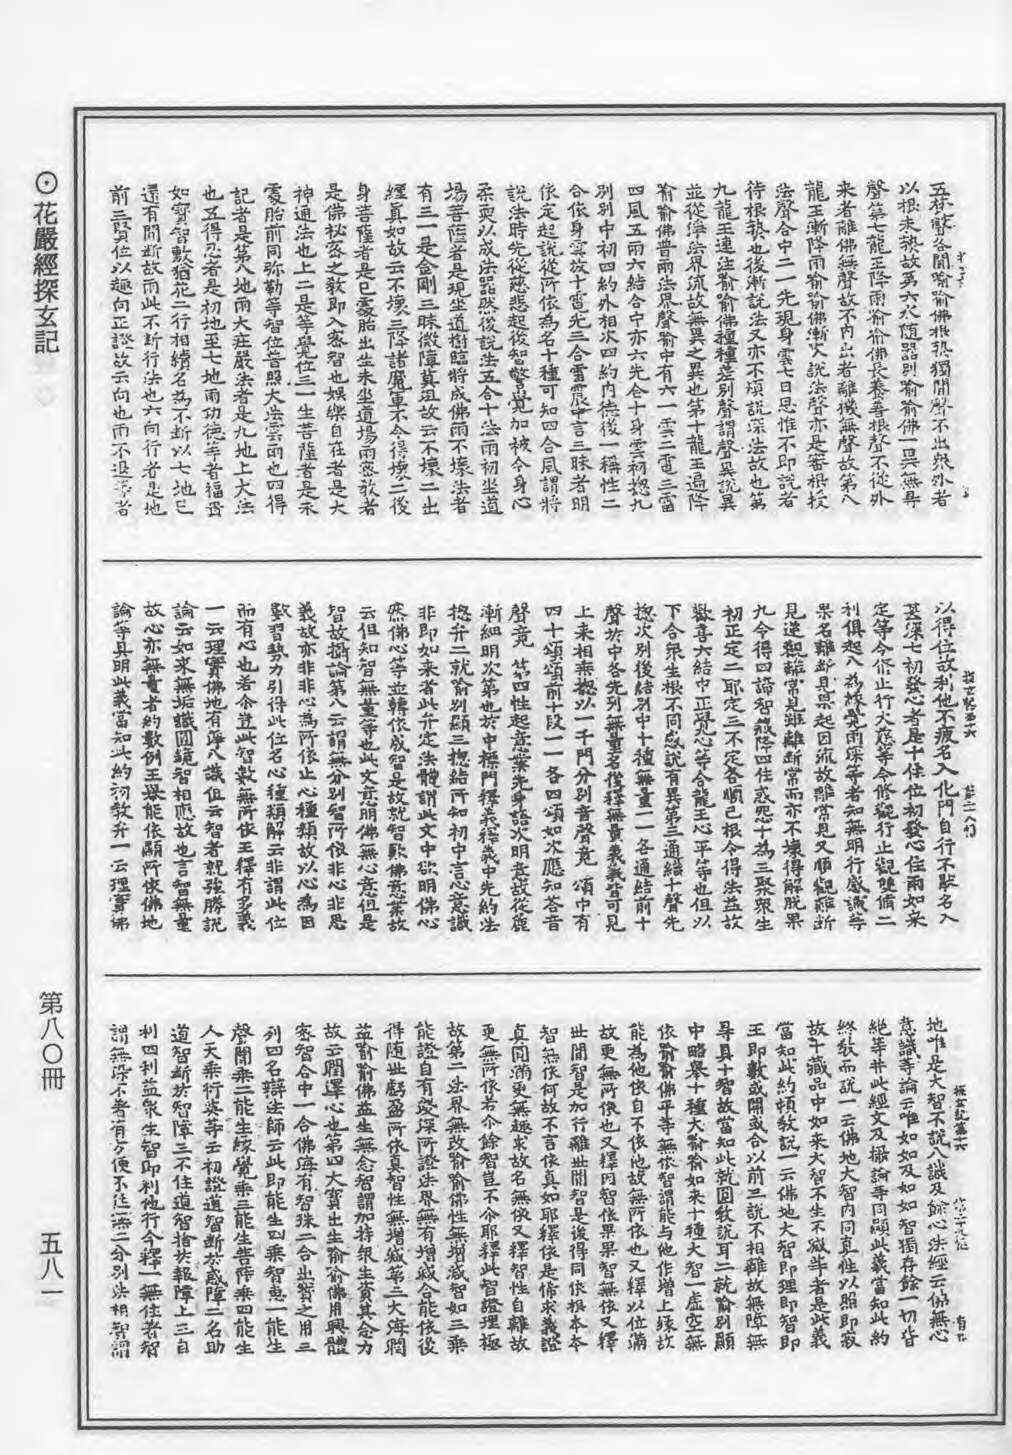 五於聲各聞喻喻佛根熟獨聞聲不出眾外者
以根未熟故第六水隨器別喻喻佛一異無尋
聲第七龍王降雨喻喻佛長養善根聲不從外
來者離佛無聲故不內出者離機無聲故第八
龍王漸降雨喻喻佛漸次說法聲亦是審根授
法聲合中二一先現身雲七日思惟不即說者
待根熟也後漸說法又亦不頓說深法故也第
九龍王連注喻喻佛種種差別聲謂聲異說異
並從淨法界流故無異之異也第十龍王遍降
喻喻佛普雨法界聲喻中有六一雲二電三雷
四風五雨六結合中亦六先合十身雲初揔九
別別中初四約外相次四約內德後一稱性二
合依身雲放十電光三合雷震中言三昧者明
依定起說從所依為名十種可知四合風謂將
說法時先從慈悲起後智警覺加被令身心
柔耎以成法器然後說生五合十法雨初坐道
場菩薩者是現坐道樹臨將成佛雨不壞法者
有三一是金剛三昧微障莫沮故云不壞二出
經真如故云不壞三降諸魔軍不令得壞二後
身菩薩者是已處胎出生未坐道場雨密教者
是佛秘密之教即入密智也娛樂自在者是大
神通法也上二是等覺位三一生菩薩者是未
處胎前同弥勒等智位普照大法雲雨也四得
記者是第八地雨大莊嚴法者是九地上大法
也五得忍者是初地至七地雨功德等者福資
如寶智敷猶花二行相續名為不斷以七地已
還有間斷故雨此不斷行法也六向行者是地
前三賢位以趣向正證故云向也雨不退等者
以得位故利他不疲名入化門自行不歇名入
甚深七初發心者是十住位初發心住雨如來
定等令修止行大慈等令修觀行止觀雙脩二
利俱起八為緣覺雨深等者知無明行感識等
果名離斷見果起因流故離常見又順觀離斷
見逆觀離常見雖離斷常而亦不壞得解脫果
九令得四諦智藏降四住惑怨十為三聚眾生
初正定二耶定三不定各順己根令得法益故
歡喜六結中正覺心等合龍王心平等也但以
下合眾生根不同感說有異第三通結十聲先
揔次別後結別中十種無量一一各通結前十
聲於中各先列無量名後釋無量義義皆可見
上來相乘揔以一千門分別音聲竟 頌中有
四十頌頌前十段一一各四頌如次應知荅音
聲竟 第四性起意業先身語次明意故從麁
漸細明次第也於中標門釋義釋義中先約法
揔弁二就喻別顯三揔結所知初中言心意識
非即如來者此弁定法體謂此文中欲明佛心
然佛心等並轉依成智是故就智歎佛意業故
云但知智無量等也此文意明佛無心意但是
智故攝論第八云謂無分別智所依非心非思
義故亦非非心為所依止心種類故以心為因
數習勢力引得此位名心種類解云非謂此位
而有心也若尒豈此智數無所依王釋有多義
一云理實佛地有淨八識但云智者就強勝說
論云如來無垢識圓鏡智相應故也言智無量
故心亦無量者約數例王舉能依顯所依佛地
論等具明此義當知此約初教弁一云理實佛
地唯是大智不說八識及餘心法經云佛無心
意識等論云唯如如及如如智獨存餘一切皆
絶等并此經文及攝論等同顯此義當知此約
終教而說一云佛地大智內同真性以照即寂
故下藏品中如來大智不生不滅等者是此義
當知此約頓教說一云佛地大智即理即智即
王即數或開或合以前三說不相離故無障無
㝵具十智故當知此就圓教說耳二就喻別顯
中略舉十種大喻喻如來十種大智一虛空無
依喻喻佛平等無依智謂能与他作增上緣故
能為他依自不依他故無所依也又釋以位滿
故更無所依也又釋因智依果果智無依又釋
世間智是加行離世間智是後得同依根本本
智無依何故不言依真如耶釋依是俙求義證
真圓滿更無趣求故名無依又釋智性自離故
更無所依若尒餘智豈不尒耶釋此智證理極
故第二法界無改喻喻佛性無增減智如三乘
能證自有淺深所證法界無有增減合能依後
得隨世虧盈所依真智性無增減第三大海潤
益喻喻佛益生無念智謂加持眾生資其念力
故云開導心也第四大寶出生喻喻佛用興體
密智合中一合佛海有智珠二合出寶之用三
列四名辯法師云此即能生四乘智惠一能生
聲聞乘二能生緣覺乘三能生菩薩乘四能生
人天乘行英等云初證道智斷於惑障二名助
道智斷於智障三不住道智捨於報障上三自
利四利益眾生智即利他行今釋一無住著智
謂無染不著有方便不住無二分別法相智謂
⊙花嚴經探玄記
第八〇冊
五八一